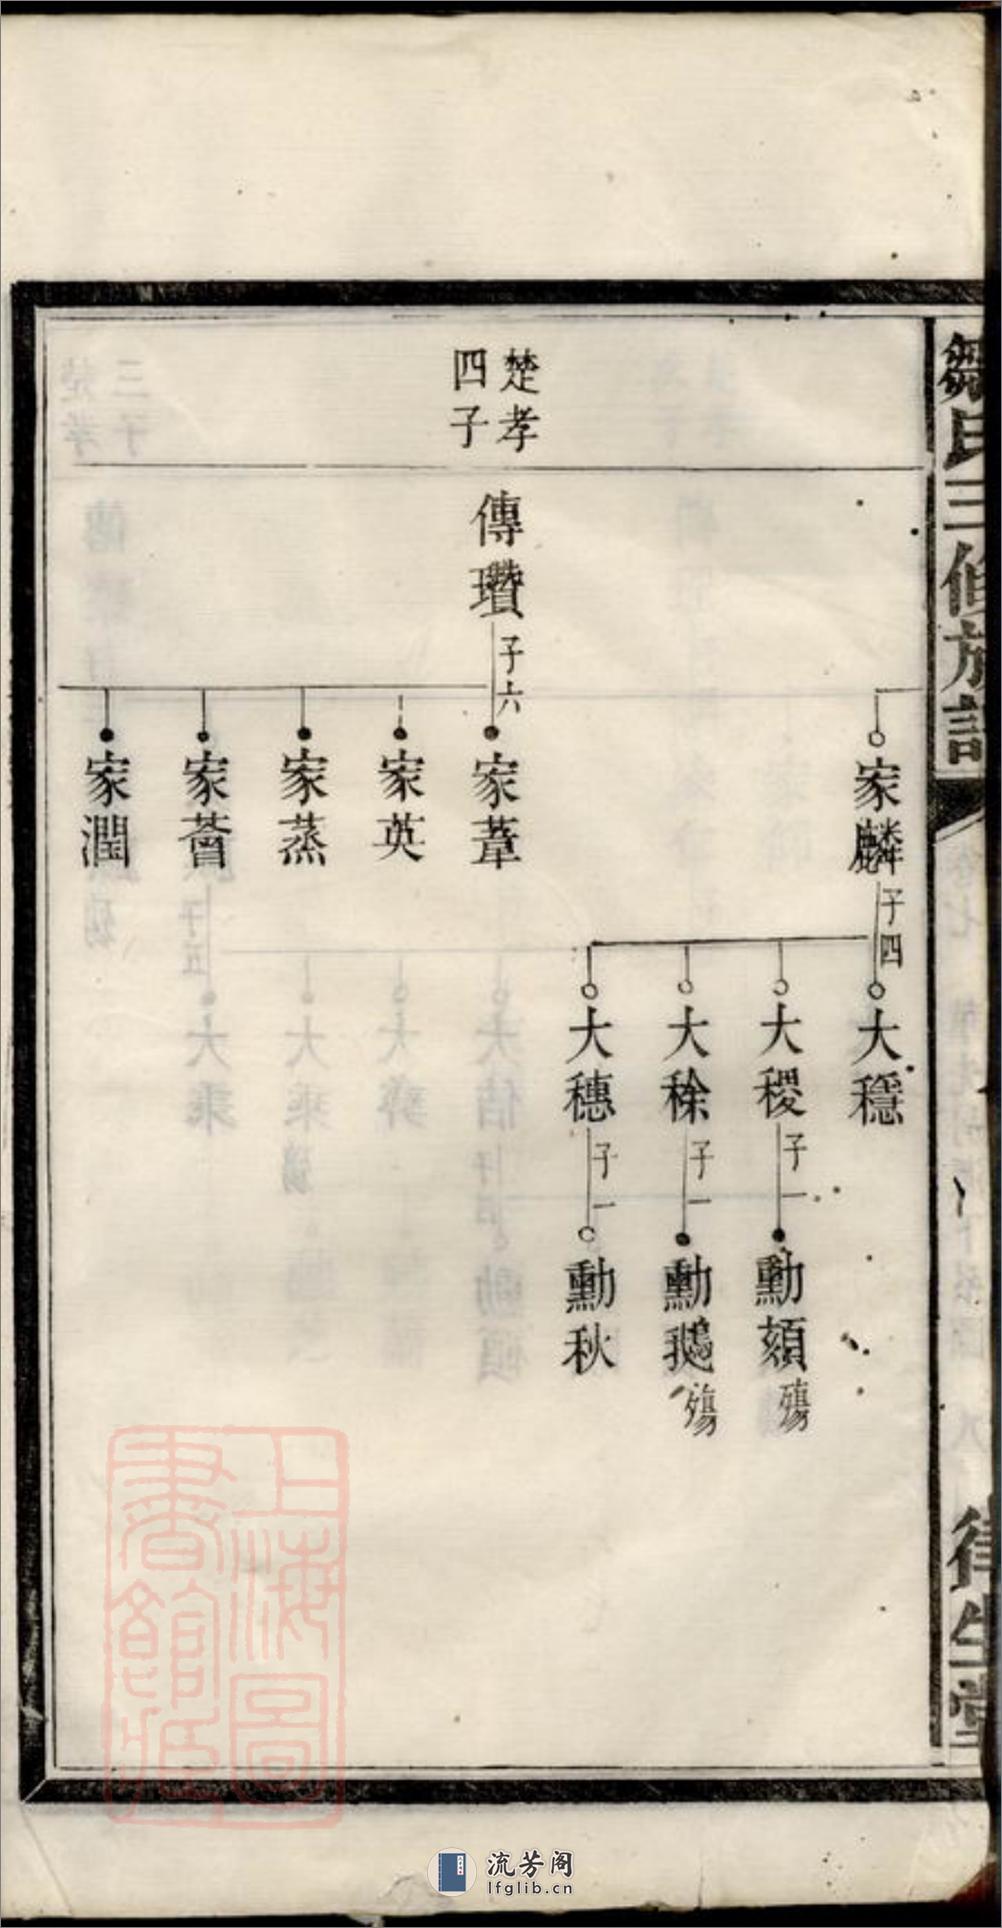 鄒氏三修族譜
律生堂
家麟
子四
大穩
大稷
子一
勳頦
殤
大稌
子一
勳鵝
殤
大穗
子一
勳秋
楚孝
四子
傳瓚
子六
家葦
家英
家蒸
家薈
家潤
上海圖
書館藏
流芳阁
lfglib.cn